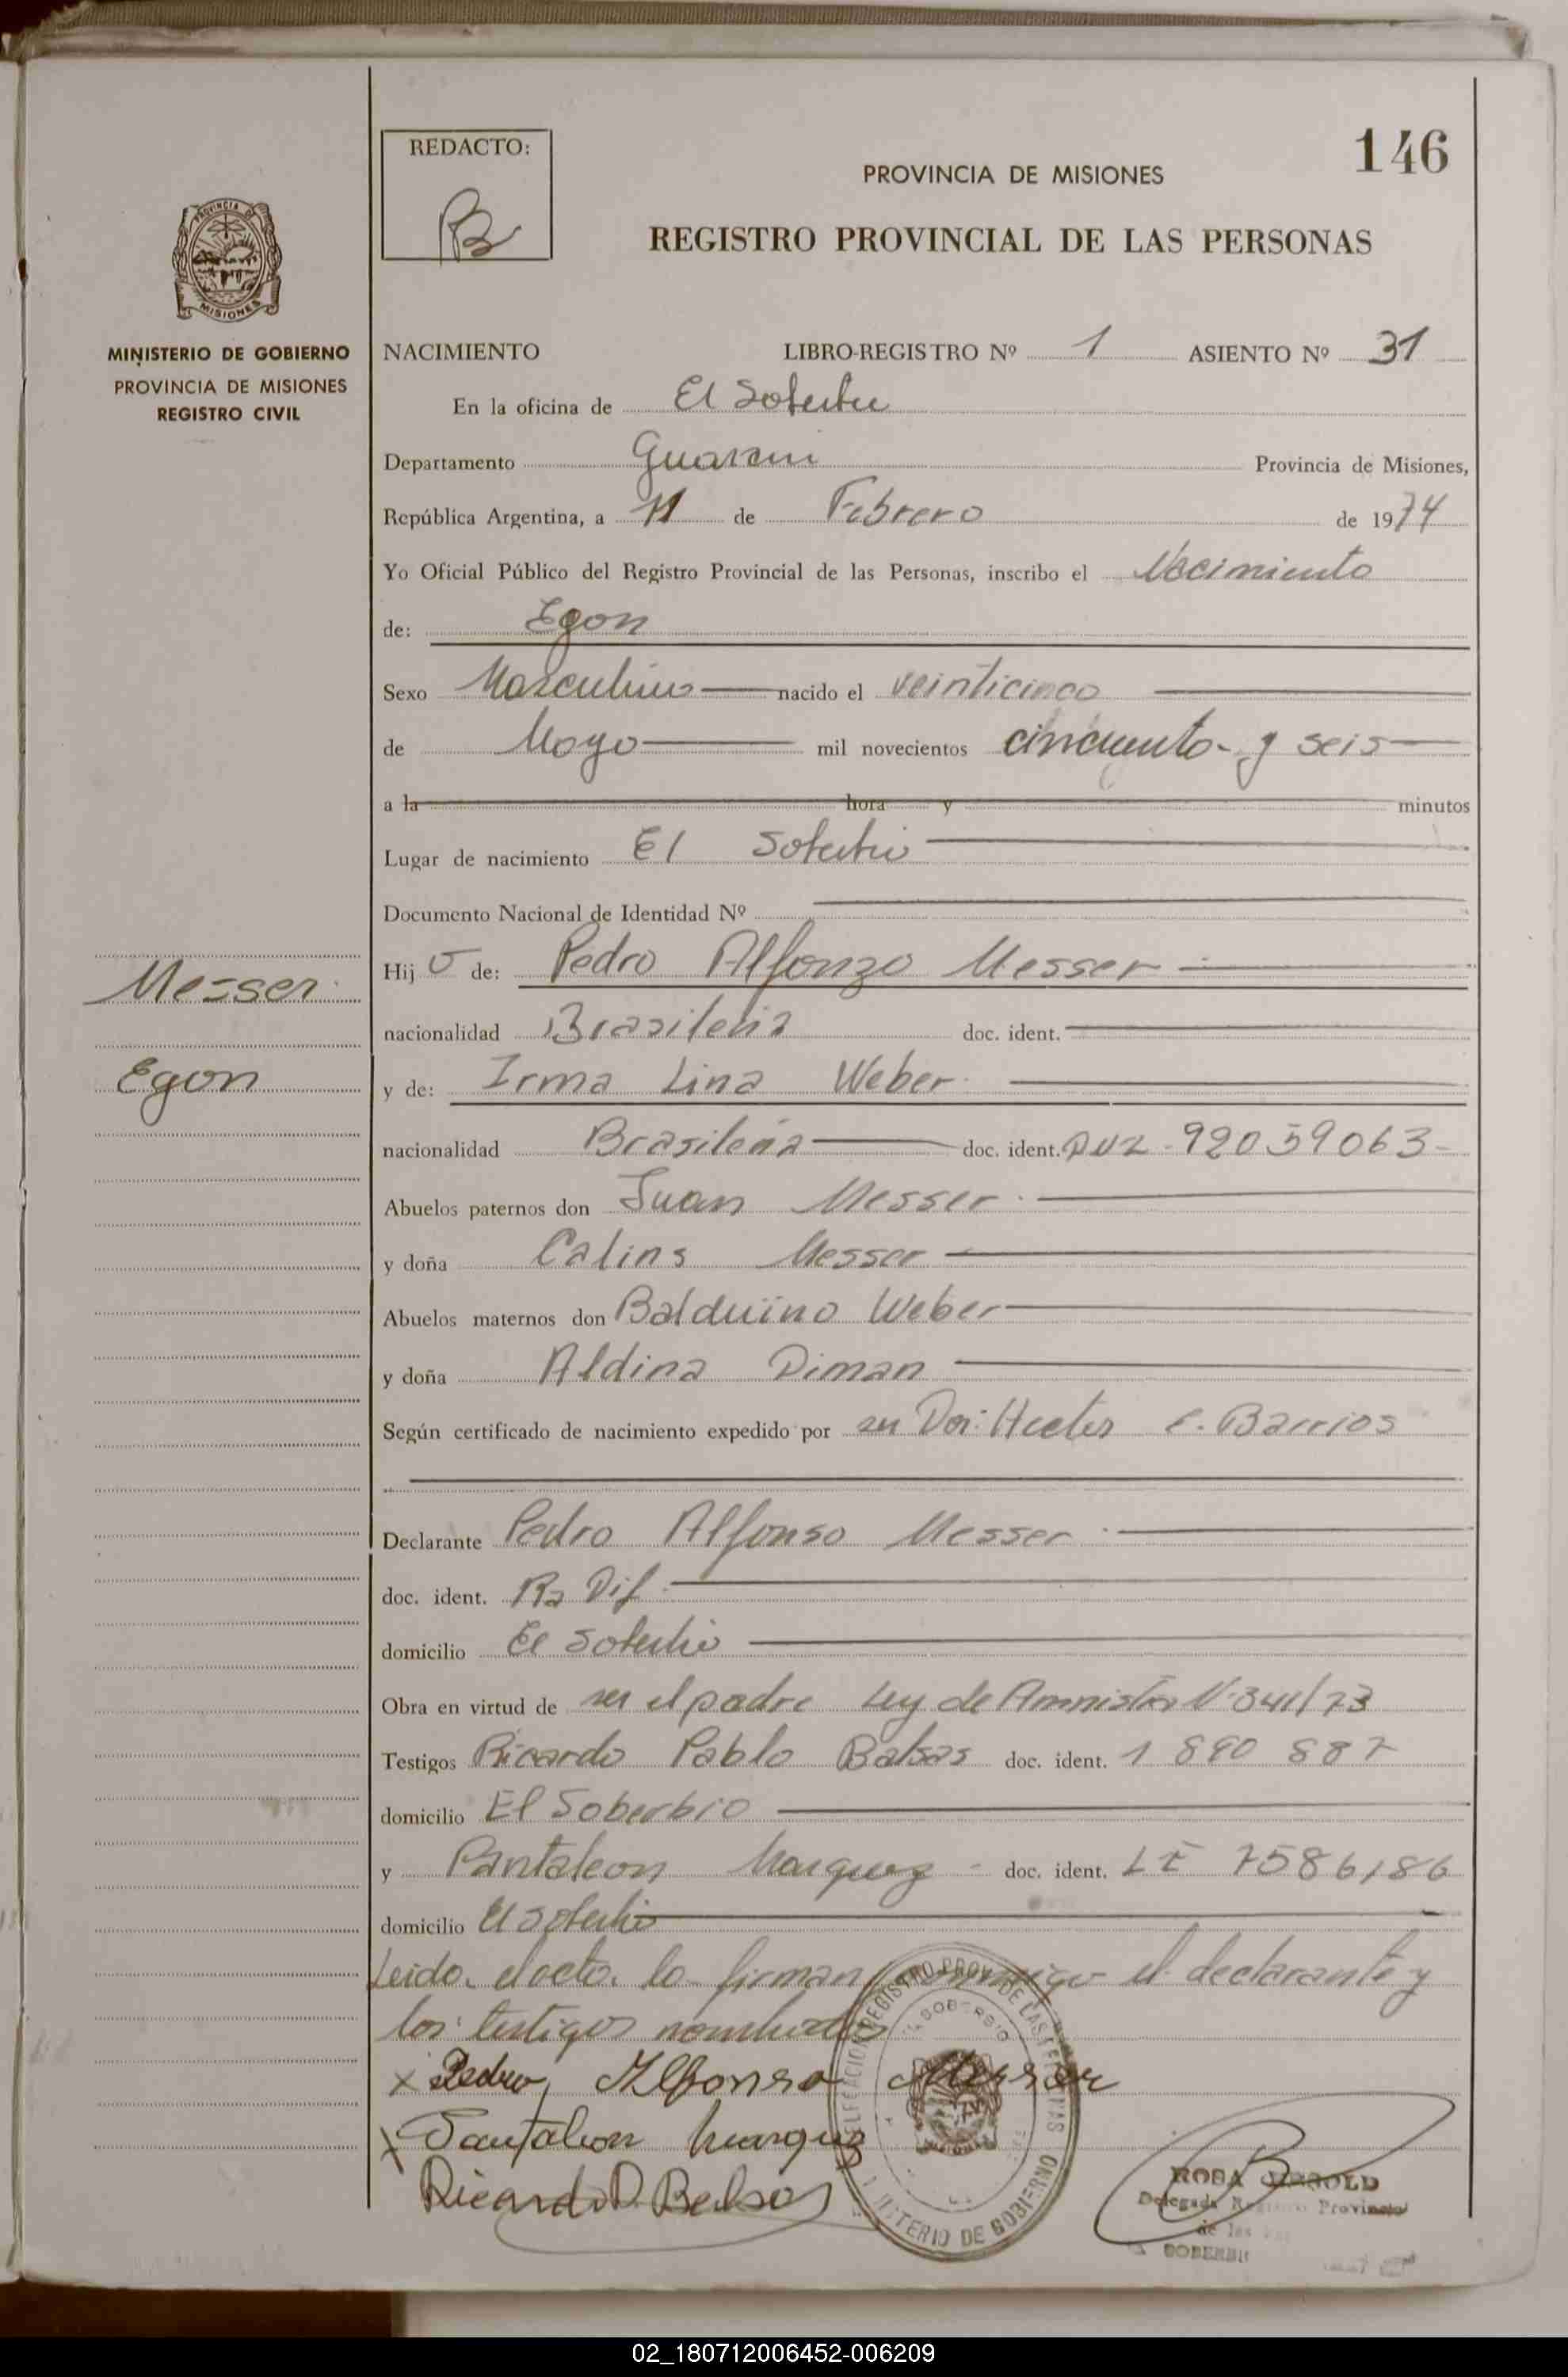 146
REDACTO:
PROVINCIA DE MISIONES
REGISTRO PROVINCIAL DE LAS PERSONAS
PROVINCIA DE
MISIONES
MINISTERIO DE GOBIERNO
PROVINCIA DE MISIONES
REGISTRO CIVIL
NACIMIENTO LIBRO-REGISTRO Nº 1 ASIENTO Nº 31
En la oficina de El Soberbio
Departamento Guarani Provincia de Misiones,
República Argentina, a 11 de Febrero de 1974
Yo Oficial Público del Registro Provincial de las Personas, inscribo el Nacimiento
de: Egon
Sexo Masculino nacido el veinticinco
de Mayo mil novecientos cincuenta y seis
a la hora y minutos
Lugar de nacimiento El Soberbio
Documento Nacional de Identidad Nº
Messer
Hijo de: Pedro Alfonzo Messer
nacionalidad Brasileña doc. ident.
Egon
y de: Irma Lina Weber
nacionalidad Brasileña doc. ident. 92059063
Abuelos paternos don Juan Messer
y doña Calins Messer
Abuelos maternos don Balduino Weber
y doña Aldina Diman
Según certificado de nacimiento expedido por Hector E. Barrios
Declarante Pedro Alfonso Messer
doc. ident. Ra Dif.
domicilio El Soberbio
Obra en virtud de ser el padre Ley de Amnistia Nº 341/73
Testigos Ricardo Pablo Balsas doc. ident. 1 890 887
domicilio El Soberbio
y Pantaleon Marquez doc. ident. LE 7586186
domicilio El Soberbio
Leido el acto lo firman conmigo el declarante y
los testigos nombrados
x Pedro Alfonso Messer
x Pantaleon Marquez
Ricardo P. Balsas
DELEGACION REGISTRO PROV. DE LAS PERSONAS
EL SOBERBIO
MINISTERIO DE GOBIERNO
ROSA
Delegada Registro Provincial
de las
SOBERBIO
02_180712006452-006209